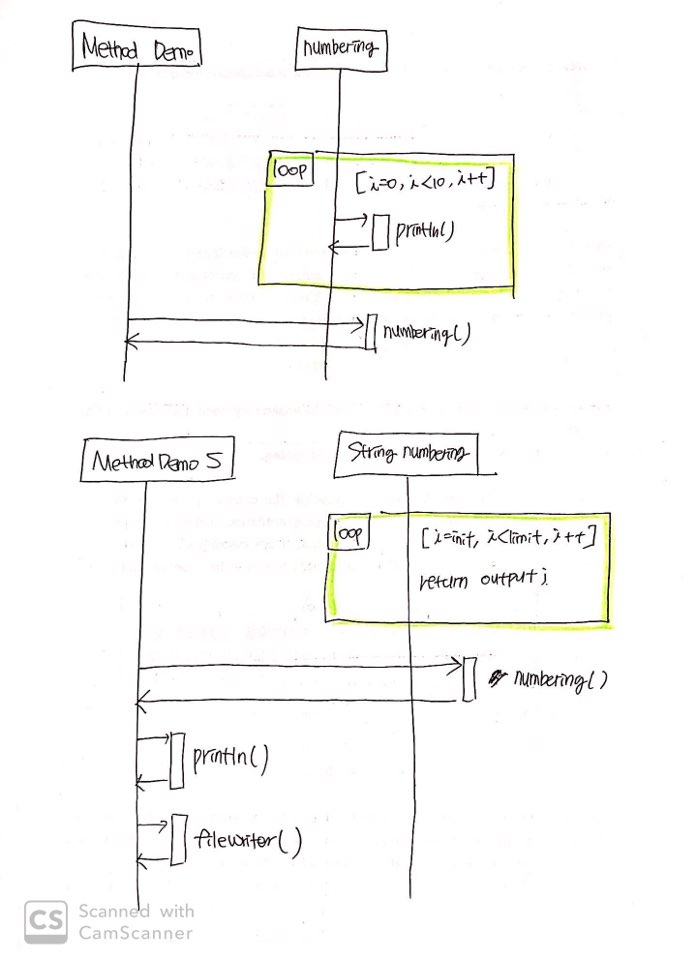 Method Demo
numbering
loop
[i=0, i<10, i++]
println()
numbering()
Method Demo 5
String numbering
loop
[i=init, i<limit, i++]
return output;
numbering()
println()
filewriter()
CS
Scanned with
CamScanner